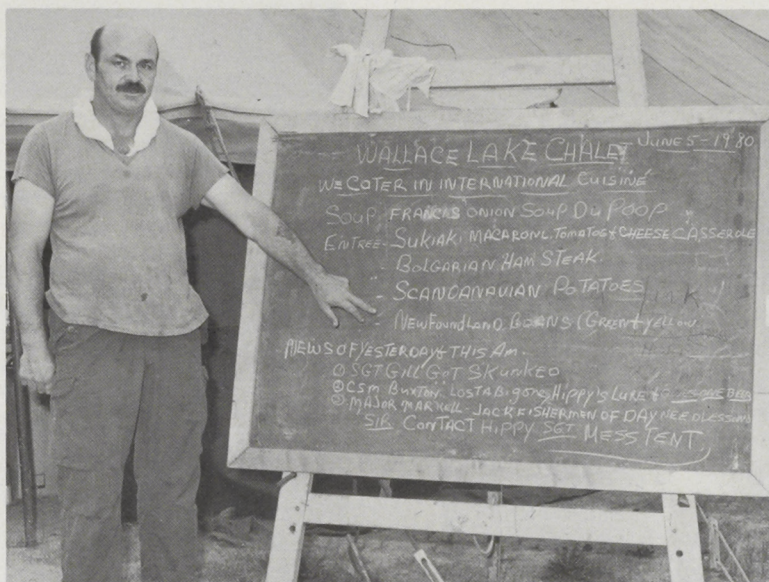 WALLACE LAKE CHALET JUNE 5-1980
WE COTER IN INTERNATIONAL CUISINE
SOUP FRANCIS ONION SOUP DU POOP
ENTREE- SUKIAKI MACARONI, TOMATOS & CHEESE CASSEROLE
- BOLGARIAN HAM STEAK.
- SCANDANAVIAN POTATOES
- NEWFOUNDLAND BEANS (GREEN & YELLOW
NEWS OF YESTERDAY & THIS AM.
① SGT GILL GOT SKUNKED
② CSM BUXTON LOST A BIG ONE, HIPPY'S LURE & BEER
③ MAJOR MARKELL- JACK FISHERMAN OF DAY NEED LESSONS
SIR CONTACT HIPPY SGT MESS TENT